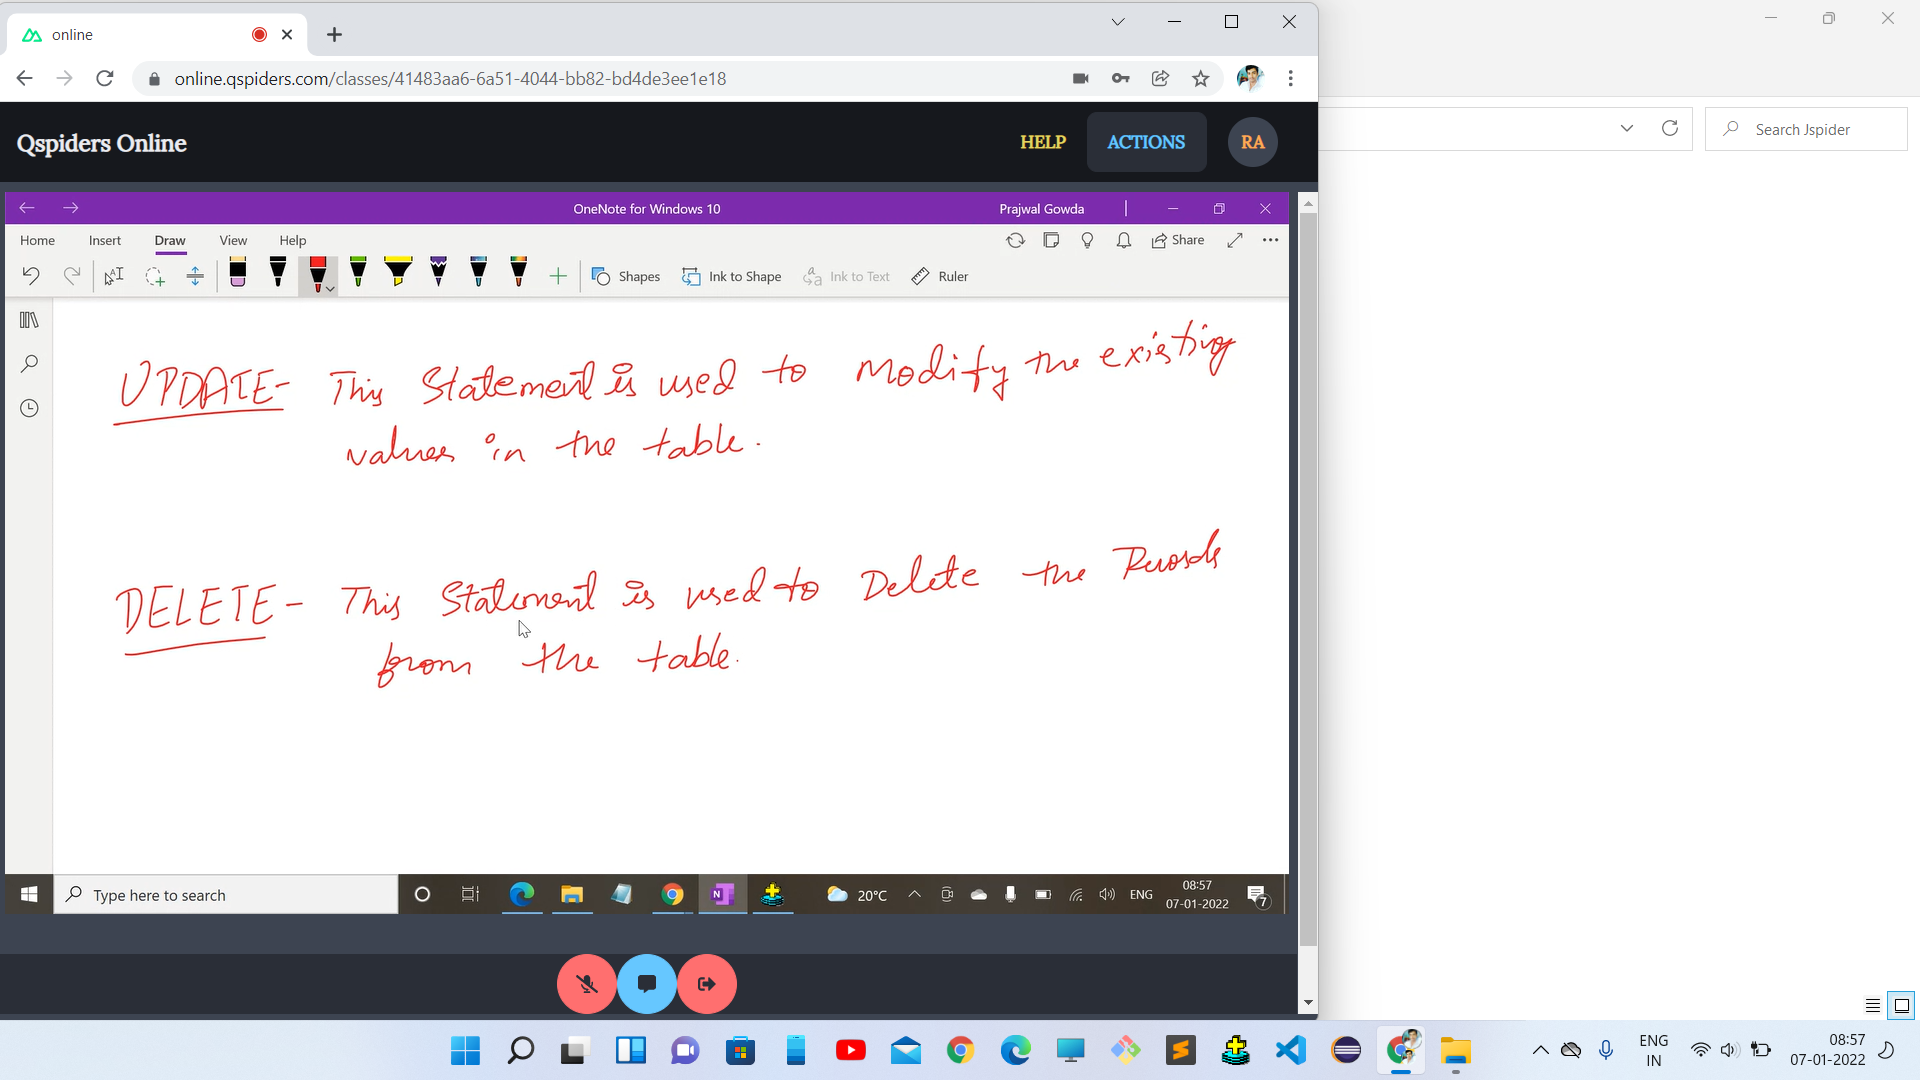 online
online.qspiders.com/classes/41483aa6-6a51-4044-bb82-bd4de3ee1e18
Qspiders Online
HELP
ACTIONS
RA
Search Jspider
OneNote for Windows 10
Prajwal Gowda
Home Insert Draw View Help
Share
Shapes
Ink to Shape
Ink to Text
Ruler
UPDATE- This Statement is used to Modify the existing
values in the table.
DELETE- This Statement is used to Delete the Records
from the table.
Type here to search
20°C
ENG
08:57
07-01-2022
7
ENG
IN
08:57
07-01-2022